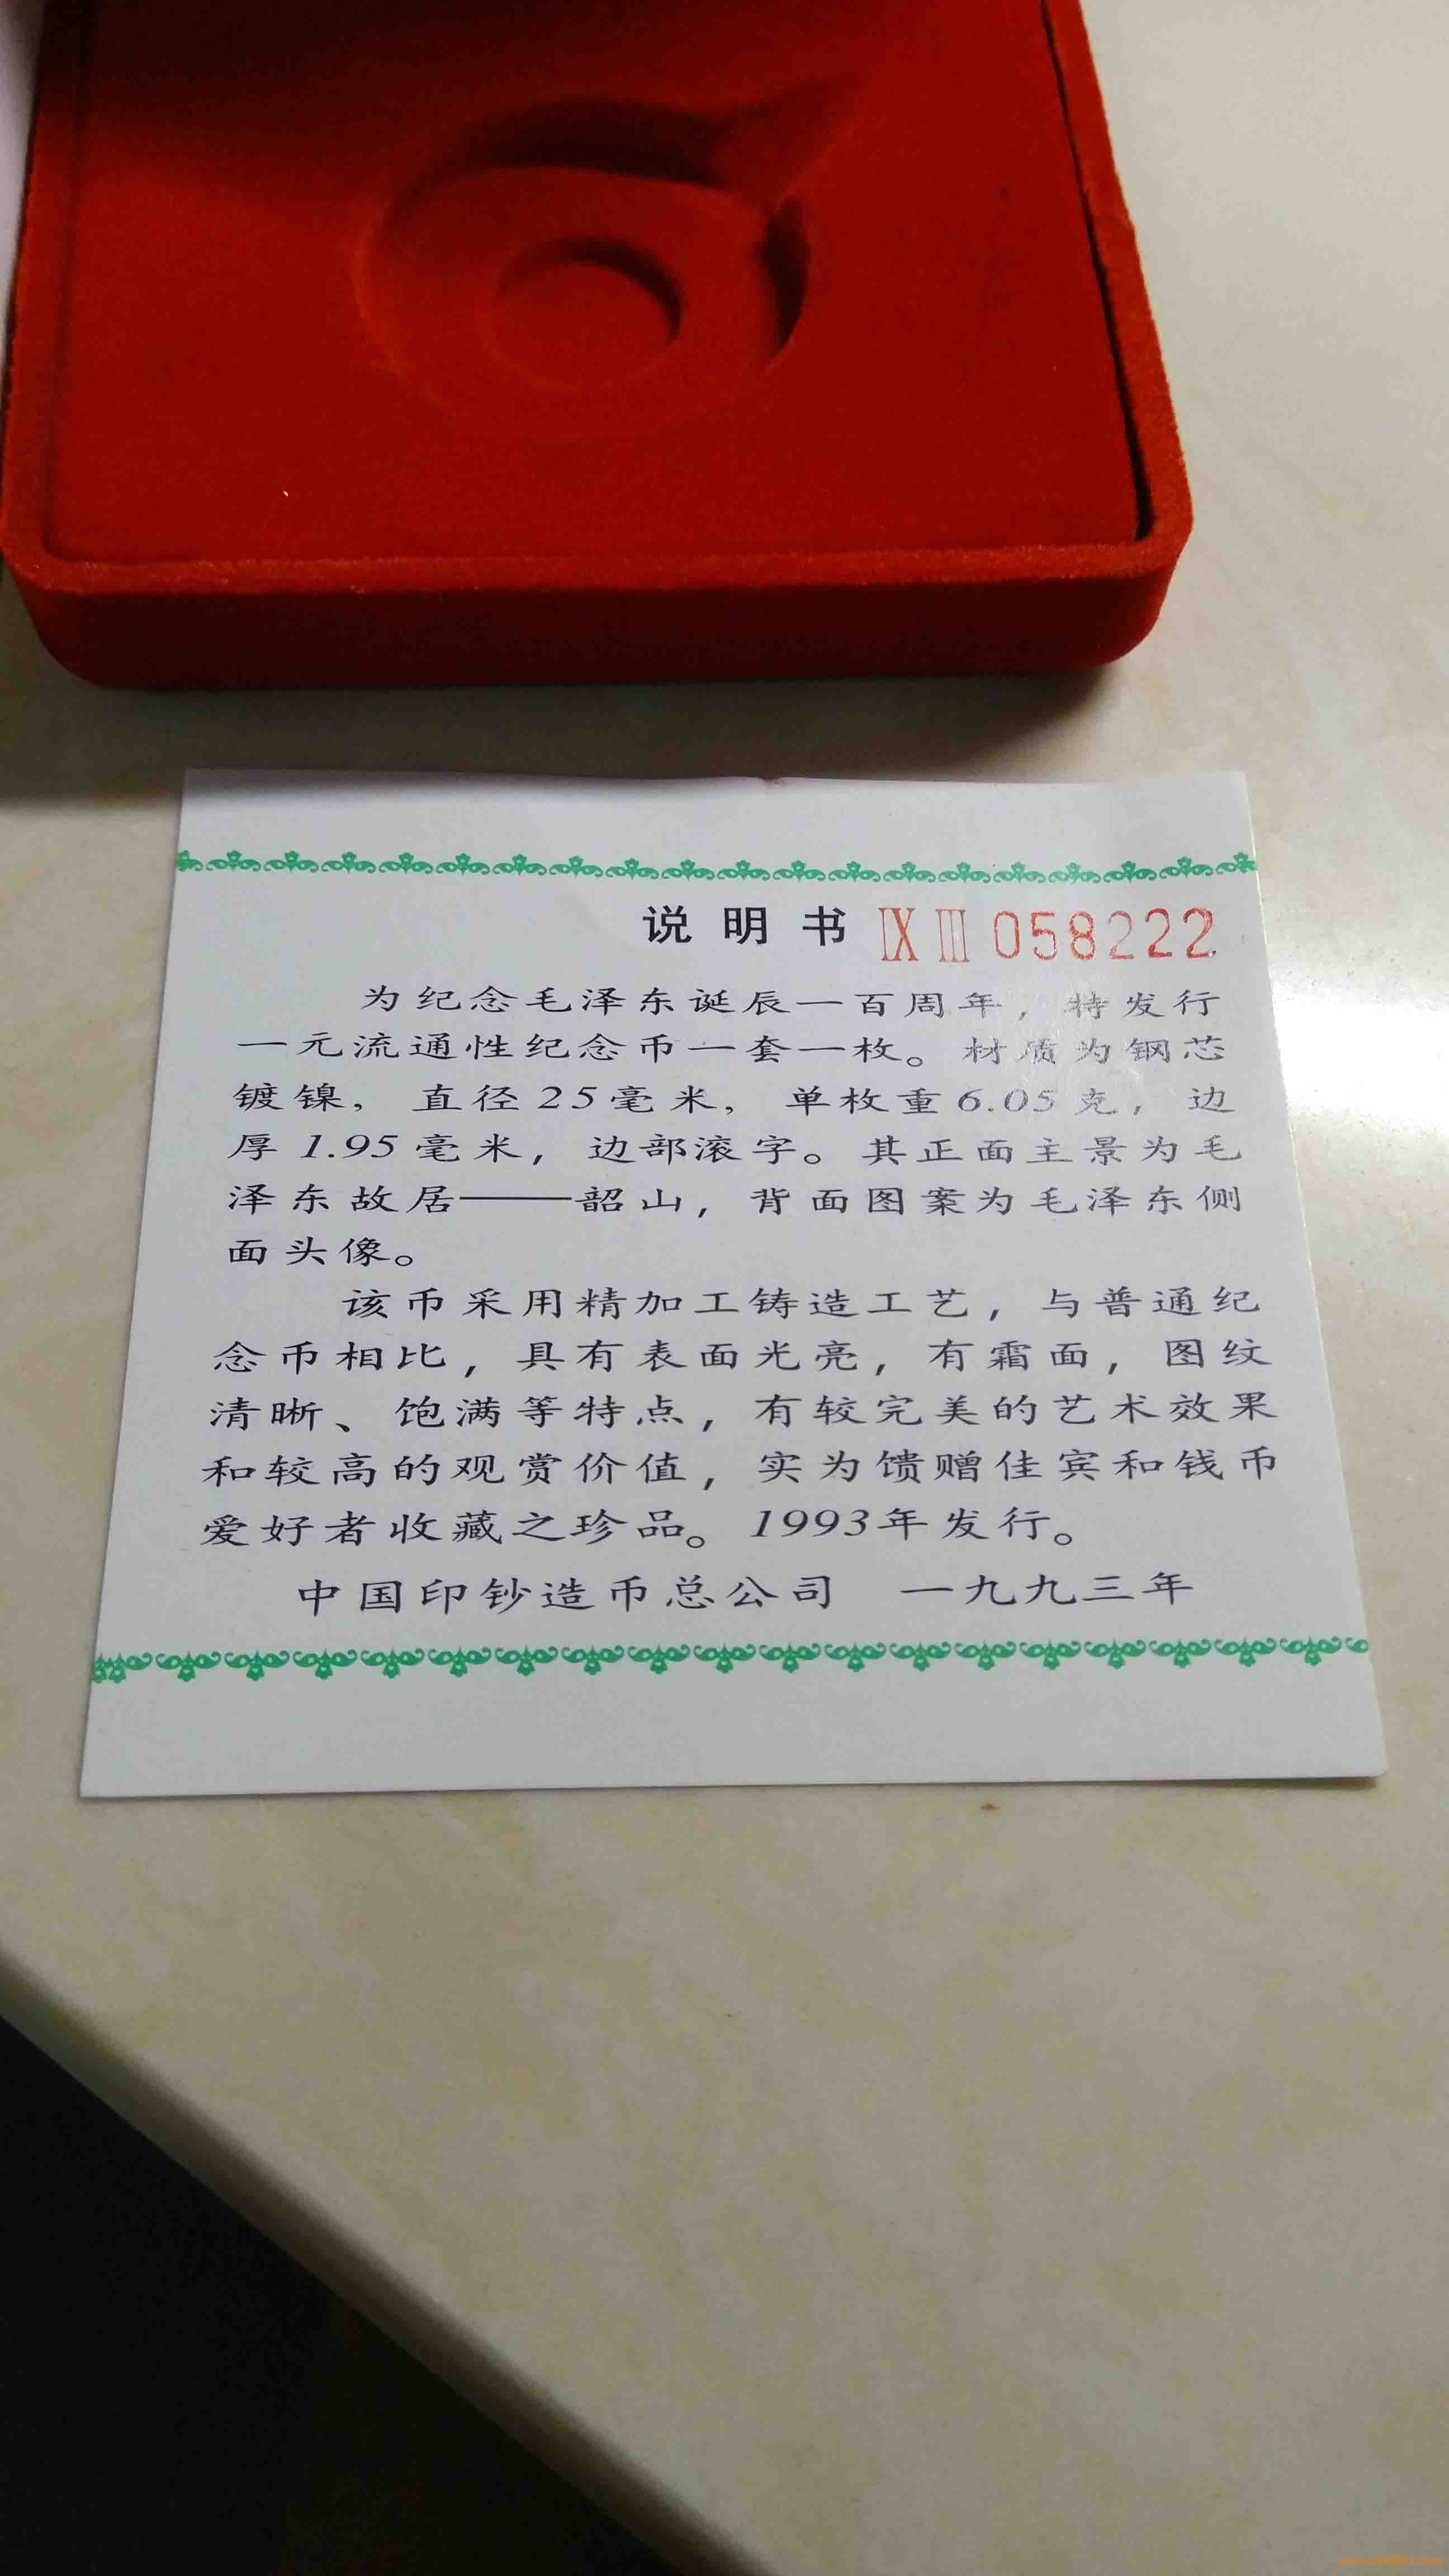 说明书 ⅨⅢ 058222
为纪念毛泽东诞辰一百周年，特发行
一元流通性纪念币一套一枚。材质为钢芯
镀镍，直径25毫米，单枚重6.05克，边
厚1.95毫米，边部滚字。其正面主景为毛
泽东故居——韶山，背面图案为毛泽东侧
面头像。
该币采用精加工铸造工艺，与普通纪
念币相比，具有表面光亮，有霜面，图纹
清晰、饱满等特点，有较完美的艺术效果
和较高的观赏价值，实为馈赠佳宾和钱币
爱好者收藏之珍品。1993年发行。
中国印钞造币总公司 一九九三年